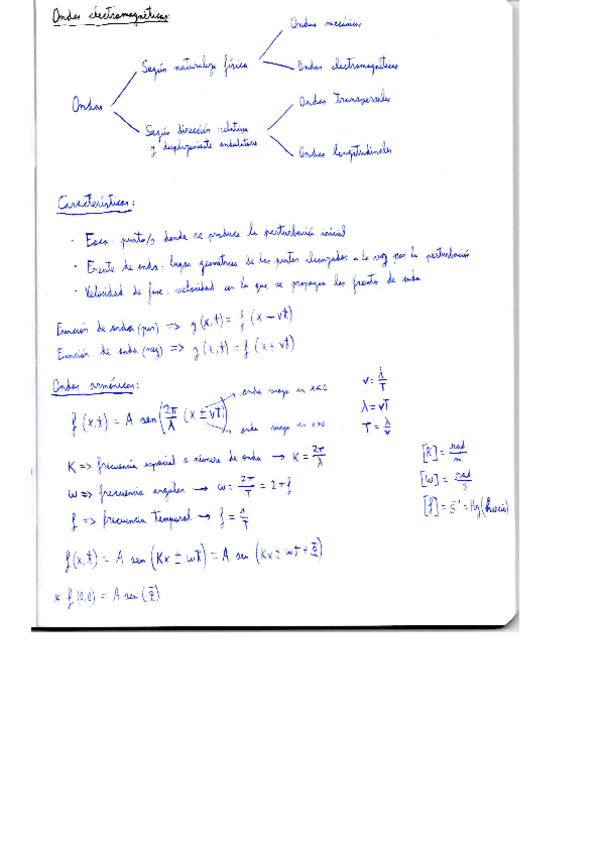 Ondas electromagnéticas:
Ondas mecánicas
Según naturaleza física
Ondas electromagnéticas
Ondas
Ondas transversales
Según dirección relativa
y desplazamiento ondulatorio
Ondas longitudinales
Características:
· Foco: punto/s donde se produce la perturbación inicial
· Frente de onda: lugar geométrico de los puntos alcanzados a la vez por la perturbación
· Velocidad de fase: velocidad con la que se propagan los frentes de onda
Función de onda (pos) => g(x,t) = f(x-vt)
Función de onda (neg) => g(x,t) = f(x+vt)
Ondas armónicas:
f(x,t) = A sen(2π/λ (x ± vt))
onda viaja en x<0
onda viaja en x>0
v = λ/T
λ = vT
T = λ/v
K => frecuencia espacial o número de onda → K = 2π/λ
[K] = rad/m
ω => frecuencia angular → ω = 2π/T = 2πf
[ω] = rad/s
f => frecuencia temporal → f = 1/T
[f] = s⁻¹ = Hz (hercio)
f(x,t) = A sen(Kx ± ωt) = A sen(Kx ± ωt + Φ)
* f(0,0) = A sen(Φ)